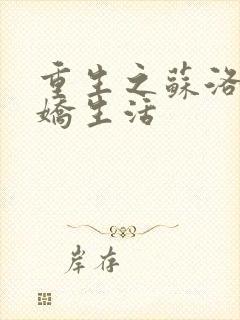 重生之蘇洛
嬌生活
岸存